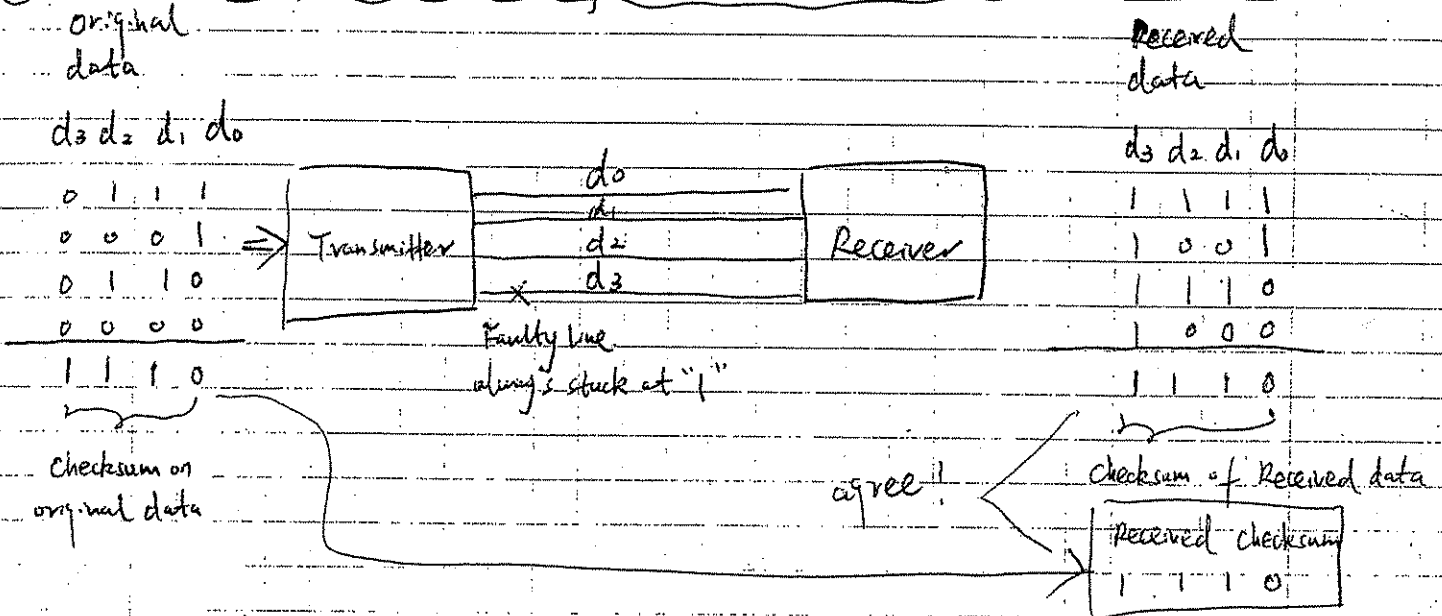 original
data
d3 d2 d1 d0
0 1 1 1
0 0 0 1
0 1 1 0
0 0 0 0
1 1 1 0
Checksum on
original data
Transmitter
d0
d1
d2
d3
Faulty line
stuck at "1"
Receiver
Received
data
d3 d2 d1 d0
1 1 1 1
1 0 0 1
1 1 1 0
1 0 0 0
1 1 1 0
Checksum of Received data
agree!
Received Checksum
1 1 1 0